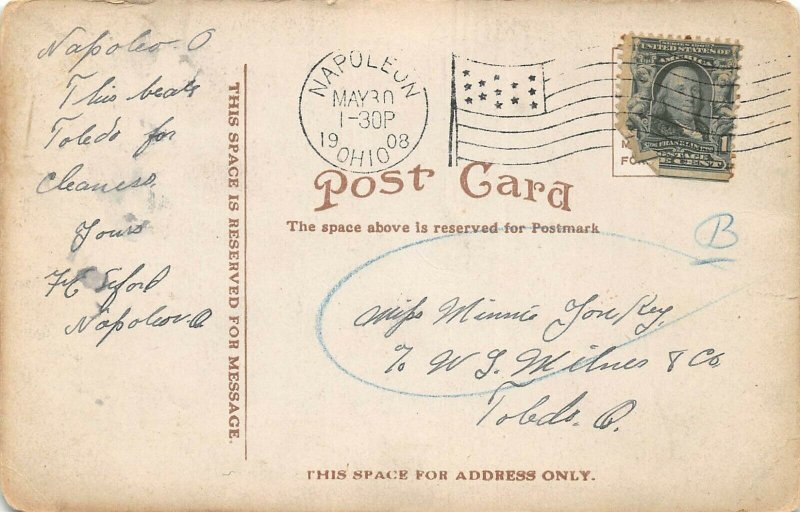 Napoleo. O
This beats
Toledo for
Cleaness.
Yours
Napoleon. O
THIS SPACE IS RESERVED FOR MESSAGE.
NAPOLEON
MAY 30
1-30P
1908
OHIO
UNITED STATES OF
AMERICA
FRANKLIN
1
POSTAGE
Post Card
The space above is reserved for Postmark
B
Miss Minnie
℅ W G. Milner & Co
Toledo. O.
THIS SPACE FOR ADDRESS ONLY.